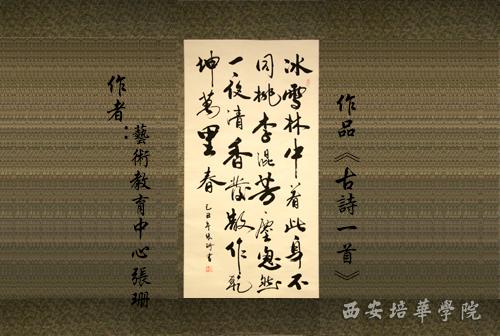 作品《古詩一首》
冰雪林中着此身不
同桃李混芳塵忽然
一夜清香發散作乾
坤萬里春
己丑年張珊書
作者：
藝術教育中心張珊
西安培華學院